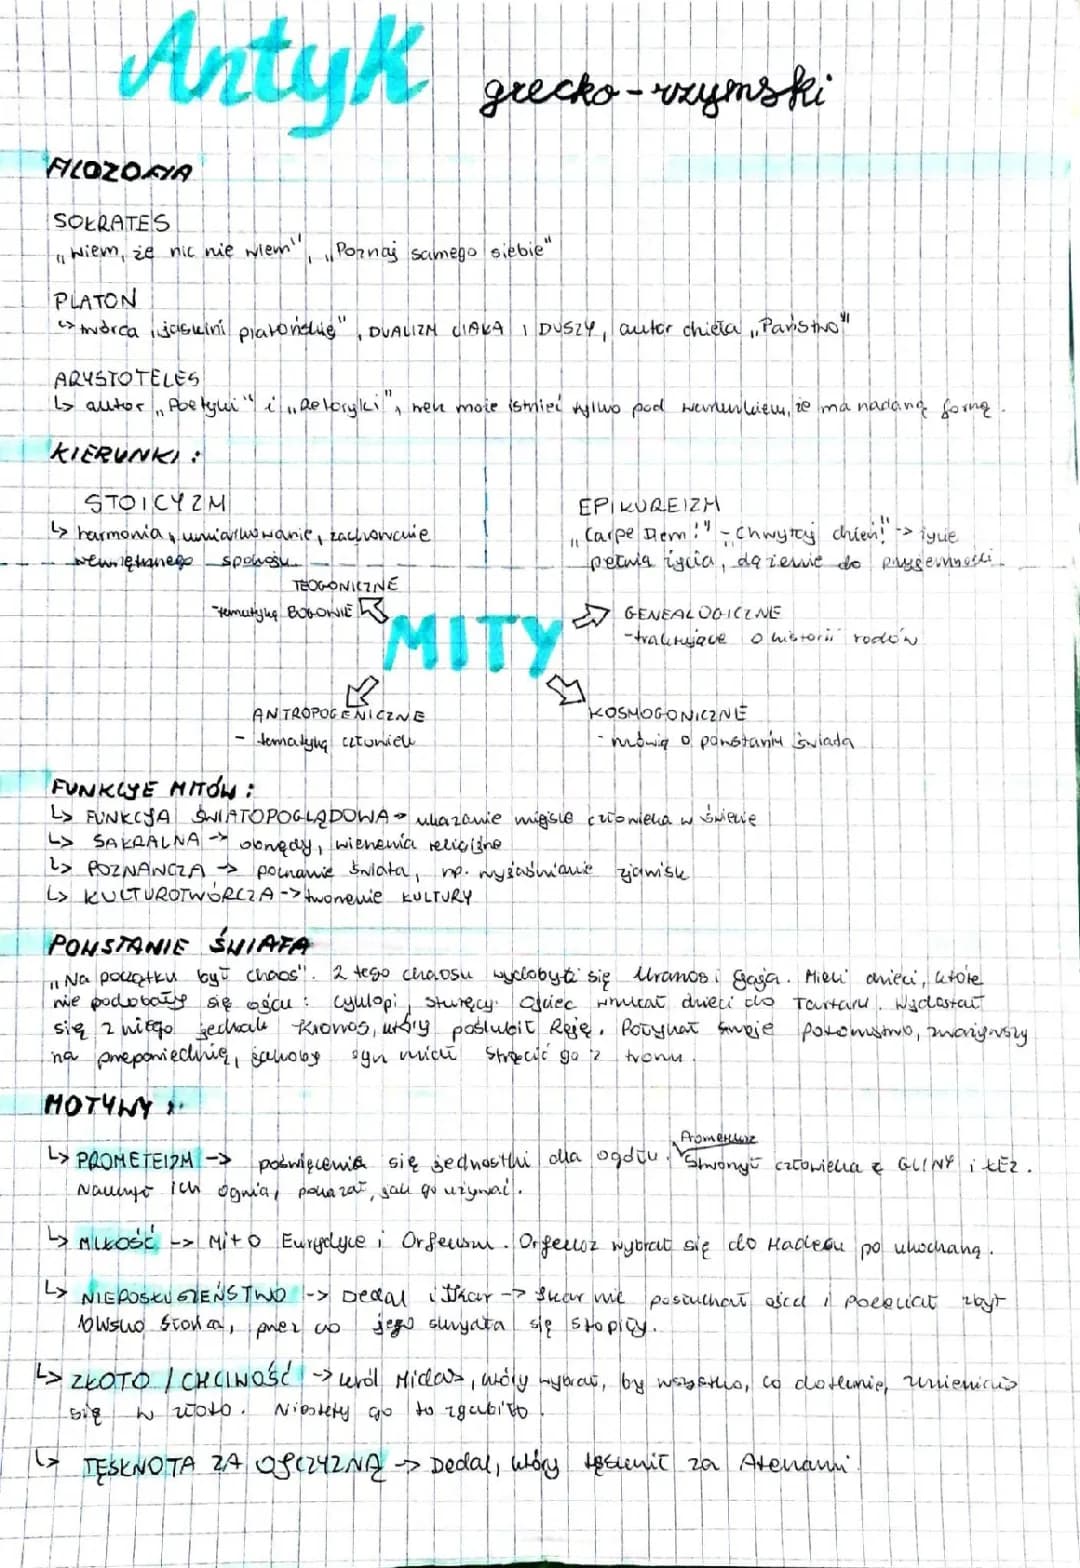 Antyk grecko-rzymski
FILOZOFIA
SOKRATES
„Wiem, że nic nie wiem", „Poznaj samego siebie"
PLATON
↳ twórca „jaskini platońskiej", DUALIZM CIAŁA I DUSZY, autor dzieła „Państwo"
ARYSTOTELES
↳ autor „Poetyki" i „Retoryki", może istnieć tylko pod warunkiem, że ma nadaną formę.
KIERUNKI:
STOICYZM
↳ harmonia, umiarkowanie, zachowanie
wewnętrznego spokoju
EPIKUREIZM
„Carpe Diem!" - „Chwytaj dzień!" -> życie
pełnią życia, dążenie do przyjemności
TEOGONICZNE
-tematyką BOGOWIE
MITY
GENEALOGICZNE
-traktujące o historii rodów
ANTROPOGENICZNE
- tematyką człowiek
KOSMOGONICZNE
- mówią o powstaniu świata
FUNKCJE MITÓW:
↳ FUNKCJA ŚWIATOPOGLĄDOWA -> ukazanie miejsce człowieka w świecie
↳ SAKRALNA -> obrzędy, wierzenia religijne
↳ POZNAWCZA -> poznanie świata, np. wyjaśnianie zjawisk
↳ KULTUROTWÓRCZA -> tworzenie KULTURY
POWSTANIE ŚWIATA
„Na początku był chaos". Z tego chaosu wydobyli się Uranos i Gaja. Mieli dzieci, które
nie podobały się ojcu: cyklopi, sturęcy. Ojciec wrzucał dzieci do Tartaru. Wydostał
się z niego jednak Kronos, który poślubił Reję. Połykał swoje potomstwo, zważywszy
na przepowiednię, jakoby syn miał strącić go z tronu.
MOTYWY:
↳ PROMETEIZM -> poświęcenia się jednostki dla ogółu. Prometeusz Stworzył człowieka z GLINY i ŁEZ.
Nauczył ich ognia, pokazał, jak go używać.
↳ MIŁOŚĆ -> Mit o Eurydyce i Orfeuszu. Orfeusz wybrał się do Hadesu po ukochaną.
↳ NIEPOSŁUSZEŃSTWO -> Dedal i Ikar -> Ikar nie posłuchał ojca i poleciał zbyt
blisko słońca, przez co jego skrzydła się stopiły.
↳ ZŁOTO / CHCIWOŚĆ -> król Midas, który wybrał, by wszystko, co dotknie, zmieniało
się w złoto. Niestety go to zgubiło.
↳ TĘSKNOTA ZA OJCZYZNĄ -> Dedal, który tęsknił za Atenami.